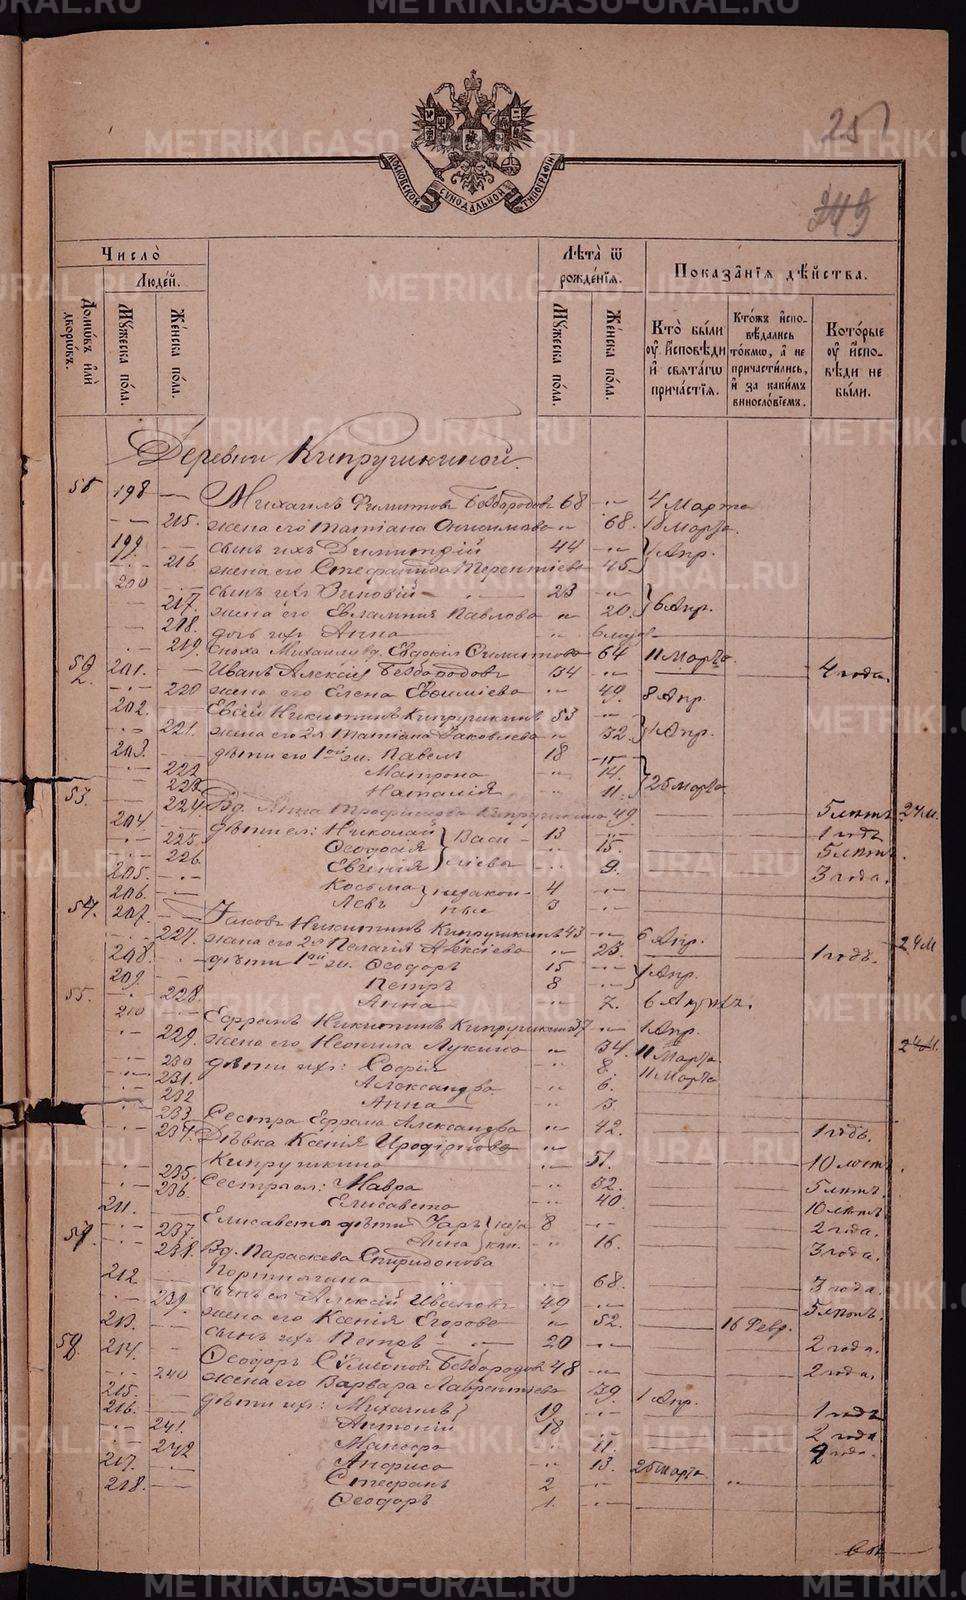 METRIKI.GASO-URAL.RU
251
249
МОСКОВСКОЙ СѴНОДАЛЬНОЙ ТИПОГРАФІИ
Число̀
Людей.
Домѡвъ илѝ дворѡвъ.
Мꙋжеска по́ла.
Же́нска по́ла.
Лѣта̀ ѿ рождє́нїѧ.
Мꙋжеска по́ла.
Же́нска по́ла.
Показа̑нїѧ дѣ́йства.
Кто̀ бы́ли оу҆ и҆́сповѣди и҆ свѧта́гѡ прича́стїѧ.
Кто́жъ и҆сповѣ́дались то́кмѡ, а҆ не причасти́лись, и҆ за каки́мъ винослові́емъ.
Кото́рые оу҆ и҆́сповѣди не бы́ли.
Деревни Кипрушкиной
51 198 — Михаилъ Филитовъ Безбородовъ 68 4 Марта
215. жена его Татіана Онисимова 68. 18 Марта
199. сынъ ихъ Димитрій 44
216 жена его Стефанида Терентіева 45 Апр.
200 сынъ ихъ Зиновій 23
217. жена его Евлампія Павлова 20. 6 Апр.
218. дочь ихъ Анна
219. Сноха Михаилу вд. Евдокія 64 11 Марта
52 201. Иванъ Алексій Безбородовъ 4 года.
220 жена его Елена Евѳиміева 49. 8 Апр.
202. Никитинъ Кипрушкинъ 53
221. жена его 2я Татіана Яковлева 32. Апр.
203 дѣти его 1ой ж. Павелъ 18
222 Матрона 14.
223 Наталія 11. 25 Марта
53. 224. Вд. Анна Трофимова Кипрушкина 49. 5 лѣтъ 24м.
204 дѣти ея: Николай 13 1 годъ
225. Ѳеодосія Васи- 15. 5 лѣтъ.
226. Евгенія ліевы 9. 3 года.
205. Косьма незакон- 4
206. Левъ ные 3
54. 207. Іаковъ Никитинъ Кипрушкинъ 43 6 Апр.
227. жена его 2я Пелагія Алексіева 25. 1 годъ. 24м
208. дѣти 1ой ж. Ѳеодоръ 15
209. Петръ 8 Апр.
228 Анна 7.
55. 210 Ефремъ Никитинъ Кипрушкинъ 37 1 Апр.
229. жена его Неонила Лукина 34. 11 Марта
230 дѣти ихъ: Софія 8. 11 Марта
231. Александра 6.
232 Анна 3.
233 Сестра Ефрема Александра 42. 1 годъ.
234. Дѣвка Ксенія
Кипрушкина 51. 10 лѣтъ.
235. Сестра ея: Мавра 52. 5 лѣтъ.
236 Елисавета 40. 10 лѣтъ.
211. Елисаветы дѣти 8 2 года.
237. Анна 16. 3 года.
57. 238. Вд. Параскева Спиридонова
Портнягина 68. 3 года.
212. сынъ ея Алексій Ивановъ 49 5 лѣтъ.
239. жена его Ксенія Егорова 52. 16 Февр.
213. сынъ ихъ Петръ 20 2 года.
58. 214. Ѳеодоръ Сѵмеоновъ Безбородовъ 48 2 года.
240 жена его Варвара Лаврентіева 39. 1 Апр.
215. дѣти ихъ: Михаилъ 19 1 годъ
216. Антоній 18 2 года
241. 11. 2 года.
242 Анфиса 13. 25 Марта
217. Стефанъ 2
218. Ѳеодоръ 1.